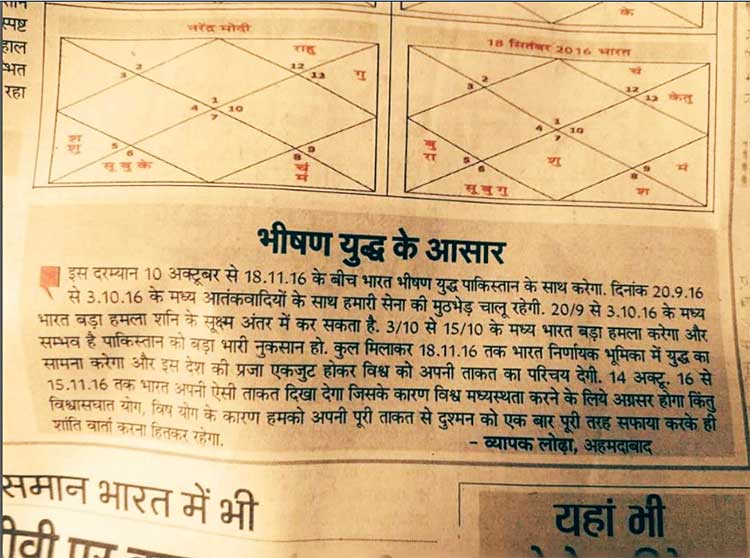 स्पष्ट
हाल
भत
रहा
के
नरेंद्र मोदी
राहु
12
11
गु
2
3
1
4
10
7
श
शु
5
6
सू बु के
9
8
चं
मं
18 सितंबर 2016 भारत
चं
12
12
केतु
2
3
1
4
10
7
बु
रा
5
6
शु
सू बु गु
9
8
मं
श
भीषण युद्ध के आसार
इस दरम्यान 10 अक्टूबर से 18.11.16 के बीच भारत भीषण युद्ध पाकिस्तान के साथ करेगा. दिनांक 20.9.16
से 3.10.16 के मध्य आतंकवादियों के साथ हमारी सेना की मुठभेड़ चालू रहेगी. 20/9 से 3.10.16 के मध्य
भारत बड़ा हमला शनि के सूक्ष्म अंतर में कर सकता है. 3/10 से 15/10 के मध्य भारत बड़ा हमला करेगा और
सम्भव है पाकिस्तान को बड़ा भारी नुकसान हो. कुल मिलाकर 18.11.16 तक भारत निर्णायक भूमिका में युद्ध का
सामना करेगा और इस देश की प्रजा एकजुट होकर विश्व को अपनी ताकत का परिचय देगी. 14 अक्टू. 16 से
15.11.16 तक भारत अपनी ऐसी ताकत दिखा देगा जिसके कारण विश्व मध्यस्थता करने के लिये अग्रसर होगा किंतु
विश्वासघात योग, विष योग के कारण हमको अपनी पूरी ताकत से दुश्मन को एक बार पूरी तरह सफाया करके ही
शांति वार्ता करना हितकर रहेगा.
- व्यापक लोढ़ा, अहमदाबाद
समान भारत में भी
यहां भी